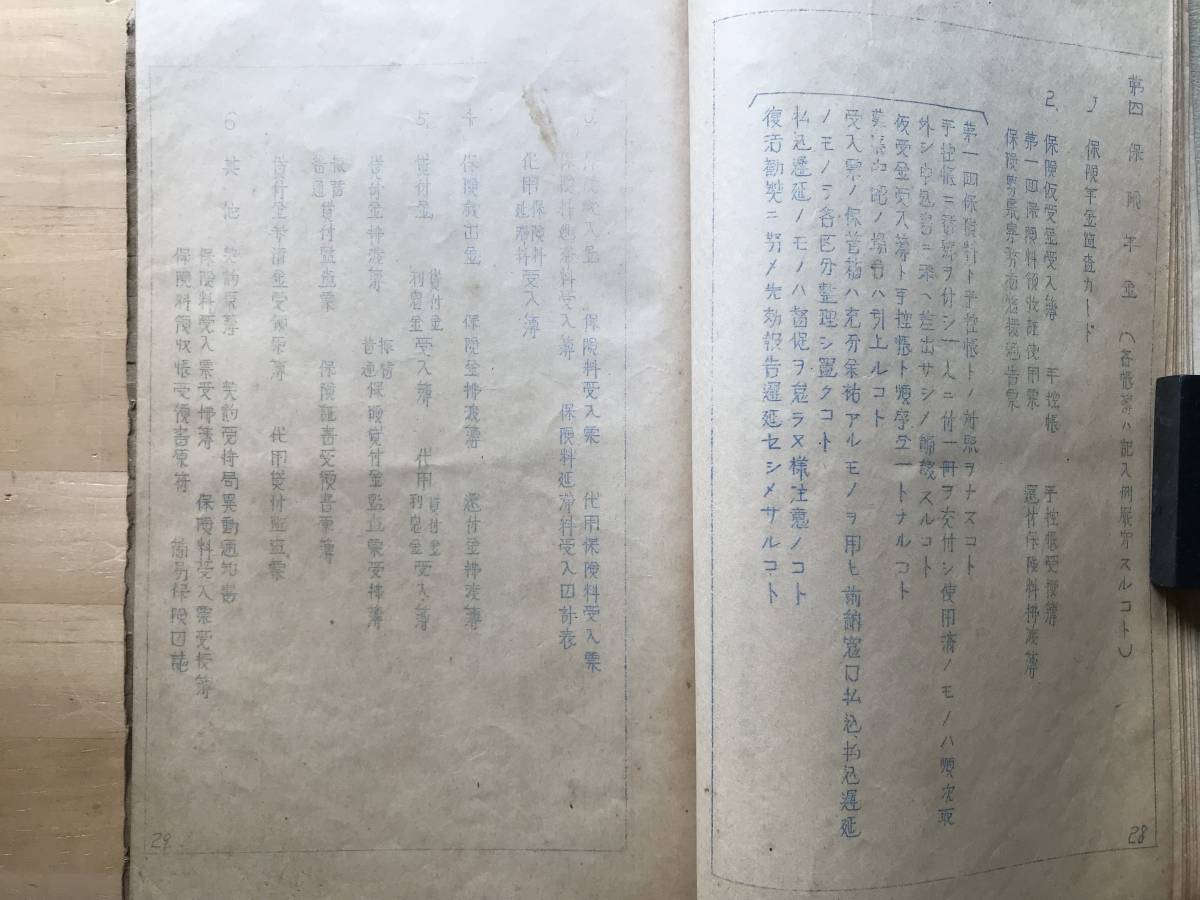 第四 保険年金 (各帳簿ハ記入例厳守スルコト)
1 保険年金監査カード
2. 保険仮受金受入簿 手控帳 手控帳受授簿
第一四保険料領収証使用票 還付保険料払渡簿
保険
第一四保険料ト手控帳トノ対照ヲナスコト
手控帳ニ番号ヲ付シ一人ニ付一冊ヲ交付シ使用済ノモノハ順次取
外シ 差出サシメ 編綴スルコト
仮受金受入簿ト手控帳ト順序 一トナルコト
ノ場合ハ引上ルコト
受入票ノ保管箱ハ充分余裕アルモノヲ用ヒ前納窓口払込、払込遅延
ノモノヲ各区分整理シ置クコト
払込遅延ノモノハ督促ヲ怠ラヌ様注意ノコト
復活勧奨ニ努メ失効報告遅延セシメサルコト
28
保険料受入票 代用保険料受入票
保険料延滞料受入簿 保険料延滞料受入日計表
代用 保険料 延滞料 受入簿
4 保険 出金 保険金払渡簿 還付金払渡簿
5. 貸付金 貸付金 利息金 受入簿 代用 貸付金 利息金 受入簿
貸付金払渡簿 振替 普通 保険貸付金監査票受払簿
振替 普通 貸付監査票 保険証書受領書原簿
代用貸付監査票
6 其他 契約原簿 契約受持局異動通知書
保険料受入票受払簿 保険料受入票受授簿
保険料領収帳受領書原符 簡易保険日誌
29